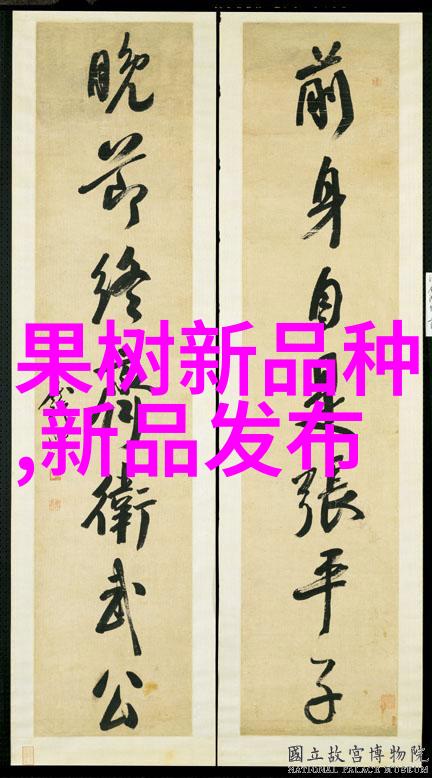 前身自是張平子
晚節終衛武公
果树新品种
,新品发布
國立故宮博物院
NATIONAL PALACE MUSEUM